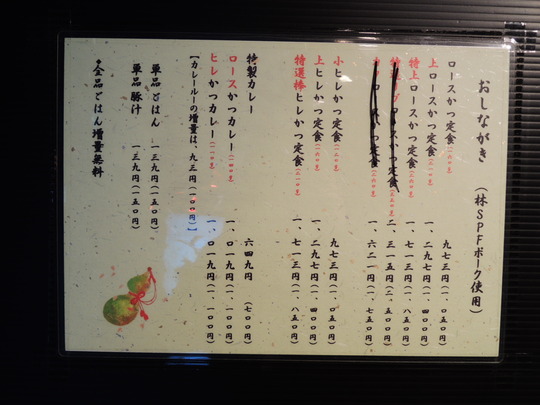 おしながき（林SPFポーク使用）
ロースかつ定食 九七三円（一、〇五〇円）
上ロースかつ定食 一、二九七円（一、四〇〇円）
特上ロースかつ定食 一、七一三円（一、八五〇円）
ロースかつ定食 二、三一五円（二、五〇〇円）
かつ定食 一、六二一円（一、七五〇円）
小ヒレかつ定食 九七三円（一、〇五〇円）
上ヒレかつ定食 一、二九七円（一、四〇〇円）
特選棒ヒレかつ定食 一、七一三円（一、八五〇円）
特製カレー 六四九円（七〇〇円）
ロースかつカレー 一、〇一九円（一、一〇〇円）
ヒレかつカレー 一、〇一九円（一、一〇〇円）
【カレールーの増量は、九三円（一〇〇円）】
単品ごはん 一三九円（一五〇円）
単品豚汁 一三九円（一五〇円）
◆全品ごはん増量無料